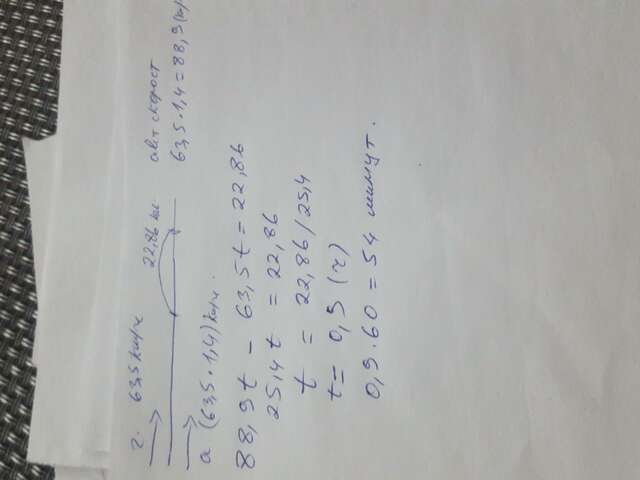 г. 63,5 км/ч
22,86 км
авт скорост
63,5·1,4=88,9(км/
а (63,5·1,4) км/ч
88,9t - 63,5t = 22,86
25,4t = 22,86
t = 22,86/25,4
t = 0,9 (ч)
0,9·60=54 минут.